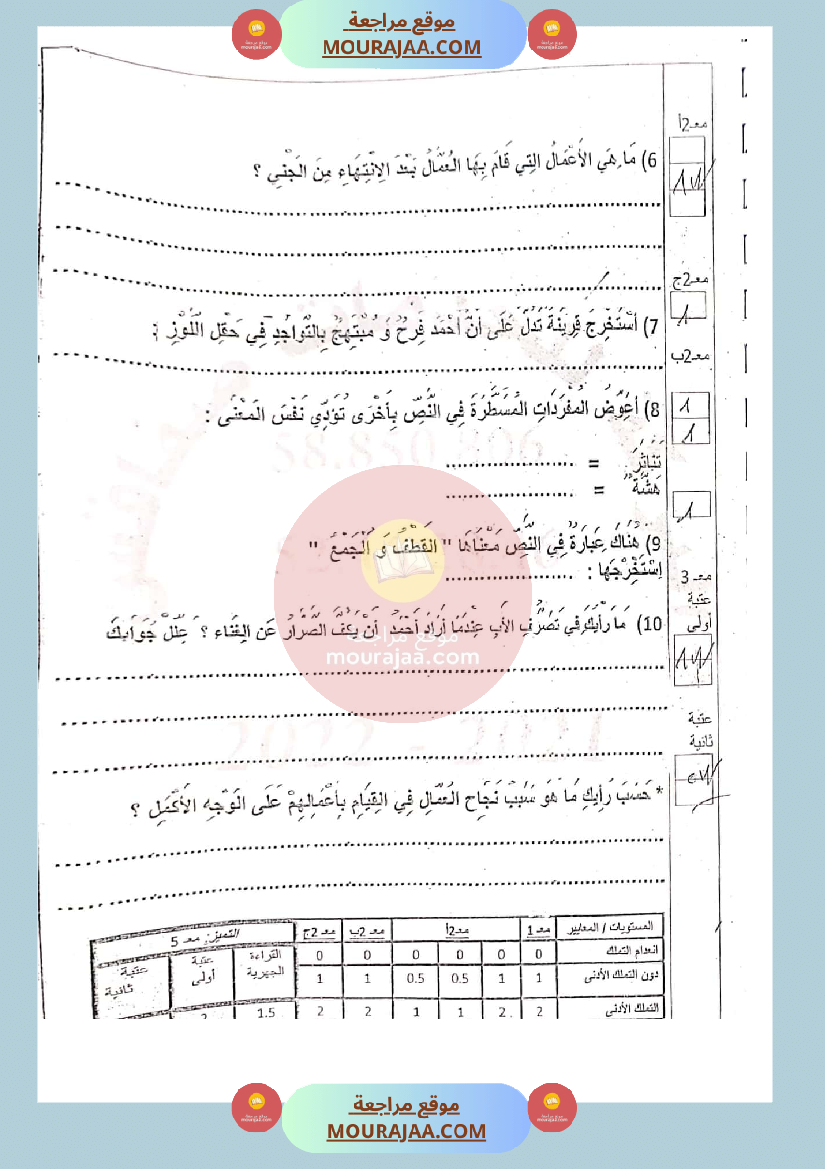 موقع مراجعة
MOURAJAA.COM
معـ2أ
6) مَا هِيَ الأَعْمَالُ التِي قَامَ بِهَا العُمَّالُ بَعْدَ الاِنْتِهَاءِ مِنَ الجَنْيِ ؟
معـ2ج
7) أَسْتَخْرِجُ قَرِينَةً تَدُلُّ عَلَى أَنَّ أَحْمَدَ فَرِحٌ وَ مُبْتَهِجٌ بِالتَّوَاجُدِ فِي حَقْلِ اللَّوْزِ :
معـ2ب
8) أُعَوِّضُ المُفْرَدَاتِ المُسَطَّرَةَ فِي النَّصِّ بِأُخْرَى تُؤَدِّي نَفْسَ المَعْنَى :
تَنَاثَرَ = ......................
هَشَّةٌ = ......................
9) هُنَاكَ عِبَارَةٌ فِي النَّصِّ مَعْنَاهَا " القَطْفُ وَ الْجَمْعُ "
اِسْتَخْرِجْهَا : ......................
معـ 3
عتبة
أولى
10) مَا رَأْيُكَ فِي تَصَرُّفِ الأَبِ عِنْدَمَا أَرَادَ أَحْمَدُ أَنْ يَكُفَّ الصَّرَّارُ عَنِ الغِنَاء ؟ عَلِّلْ جَوَابَكَ
موقع مراجعة
mourajaa.com
عتبة
ثانية
2021 - 2022
* حَسَبَ رَأْيِكِ مَا هُوَ سَبَبُ نَجَاحِ العُمَّالِ فِي القِيَامِ بِأَعْمَالِهِمْ عَلَى الوَجْهِ الأَكْمَلِ ؟
المستويات / المعايير معـ 1 معـ2أ معـ 2ب معـ 2ج التميز: معـ 5
انعدام التملك 0 0 0 0 0 0 القراءة الجهرية عتبة أولى عتبة ثانية
دون التملك الأدنى 1 1 0.5 0.5 1 1
التملك الأدنى 2 2 1 1 2 2 1.5 2
موقع مراجعة
MOURAJAA.COM